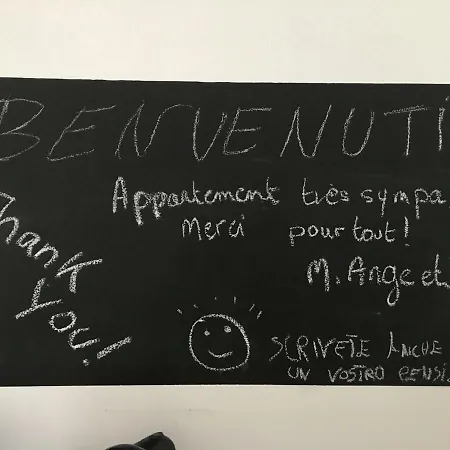 BENVENUTI
Appartement très sympa
Merci pour tout!
M. Ange et
Thank
you!
SCRIVETE ANCHE
UN VOSTRO PENSI